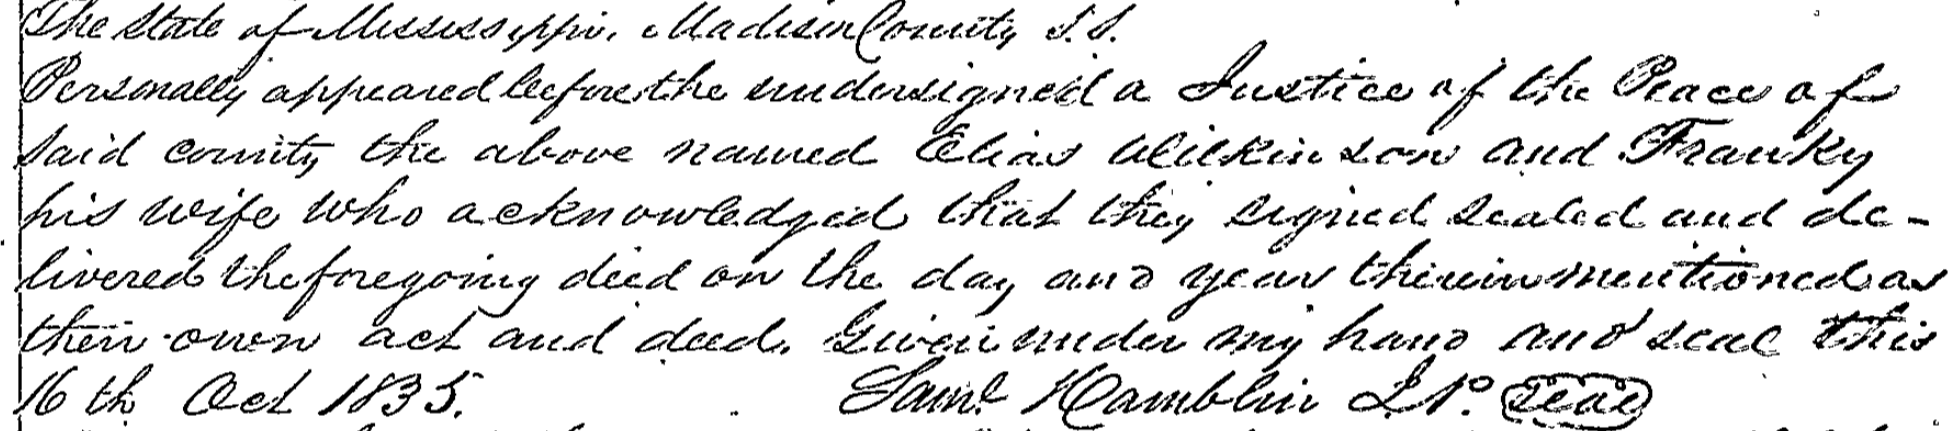 The State of Mississippi, Madison County S.S.
Personally appeared before the undersigned a Justice of the Peace of
said county the above named Elias Wilkinson and Franky
his wife who acknowledged that they signed sealed and de-
livered the foregoing deed on the day and year therein mentioned as
their own act and deed. Given under my hand and seal this
16th Oct 1835. Saml Hamblin J.P. seal